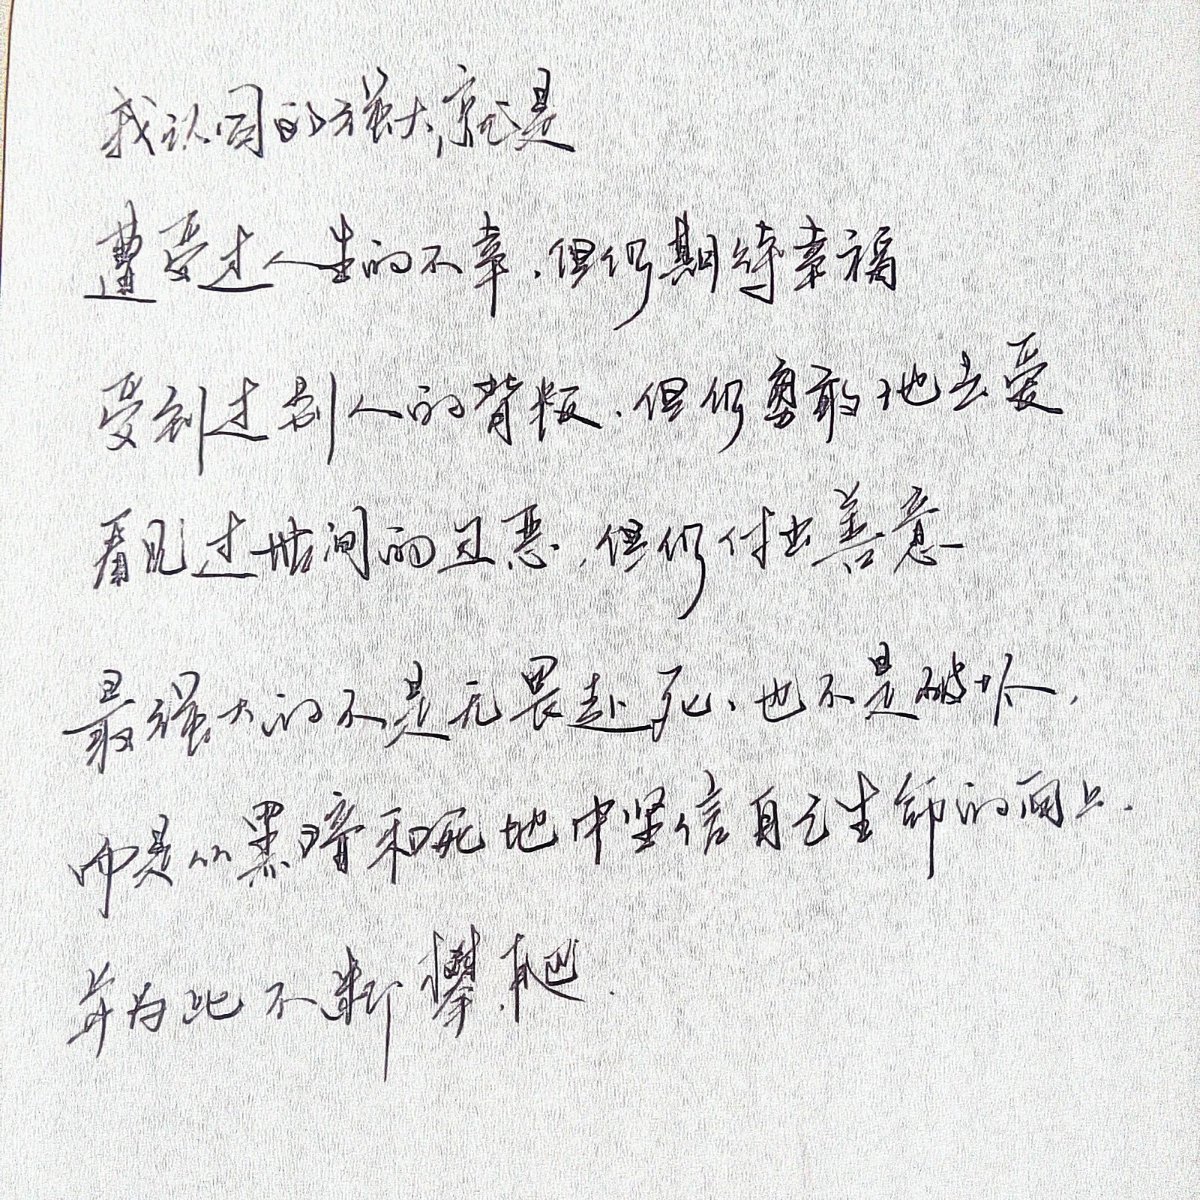 我认同的强大,就是
遭受过人生的不幸,但仍期待幸福
受到过别人的背叛,但仍勇敢地去爱
看见过世间的丑恶,但仍付出善意
最强大的不是无畏赴死,也不是破坏,
而是从黑暗和死地中坚信自己生命的向上.
并为此不断攀爬.